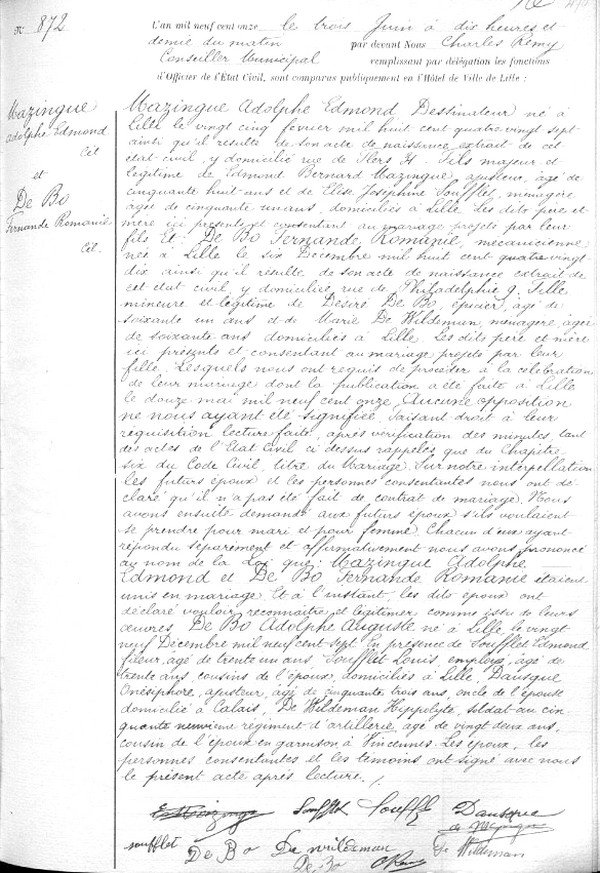 N° 872
L'an mil neuf cent onze le trois Juin à dix heures et
demie du matin par devant Nous Charles Rémy
Conseiller Municipal remplissant par délégation les fonctions
d'Officier de l'Etat Civil, sont comparus publiquement en l'Hôtel de Ville de Lille :
Mazingue
Adolphe Edmond
Cél
et
De Bo
Fernande Romanie
Cél.
Mazingue Adolphe Edmond Destinateur né à
Lille le vingt cinq février mil huit cent quatre vingt sept
ainsi qu'il résulte de son acte de naissance extrait de cet
état-civil, y domicilié rue de Flers H. Fils majeur et
légitime de Edmond Bernard Mazingue, ajusteur, âgé de
cinquante huit ans et de Elise Joséphine Soufflet, ménagère
âgée de cinquante un ans, domiciliés à Lille. Les dits père et
mère ici présents et consentant au mariage projeté par leur
fils Et : De Bo Fernande Romanie, mécanicienne,
née à Lille le six Décembre mil huit cent quatre vingt
dix ainsi qu'il résulte de son acte de naissance extrait de
cet état civil, y domiciliée, rue de Philadelphie 9. Fille
mineure et légitime de Désiré De Bo, épicier, âgé de
soixante un ans et de Marie De Wildeman, ménagère, âgée
de soixante ans domiciliés à Lille. Les dits père et mère
ici présents et consentant au mariage projeté par leur
fille. Lesquels nous ont requis de procéder à la célébration
de leur mariage dont la publication a été faite à Lille
le douze mai mil neuf cent onze. Aucune opposition
ne nous ayant été signifiée. Faisant droit à leur
réquisition lecture faite, après vérification des minutes, tant
des actes de l'Etat Civil ci dessus rappelés que du Chapitre
six du Code Civil, titre du Mariage. Sur notre interpellation
les futurs époux et les personnes consentantes nous ont dé-
claré qu'il n'a pas été fait de contrat de mariage. Nous
avons ensuite demandé aux futurs époux s'ils voulaient
se prendre pour mari et pour femme. Chacun d'eux ayant
répondu séparément et affirmativement nous avons prononcé
au nom de la Loi que : Mazingue Adolphe
Edmond et De Bo Fernande Romanie étaient
unis en mariage. Et à l'instant, les dits époux ont
déclaré vouloir reconnaître et légitimer comme issu de leurs
œuvres, De Bo Adolphe Auguste né à Lille, le vingt
neuf Décembre mil neuf cent sept. En présence de Soufflet Edmond,
fileur, âgé de trente un ans, Soufflet Louis, employé, âgé de
trente ans, cousins de l'époux, domiciliés à Lille, Dausque
Onésiphore, ajusteur, âgé de cinquante trois ans, oncle de l'épouse
domicilié à Calais, De Wildeman Hippolyte, soldat au cin
quante neuvième régiment d'artillerie, âgé de vingt deux ans,
cousin de l'époux en garnison à Vincennes. Les époux, les
personnes consentantes et les témoins ont signé avec nous
le présent acte après lecture.
Soufflet Souffl Dausque
soufflet De Bo De wildeman De Wildeman
De Bo C Rémy